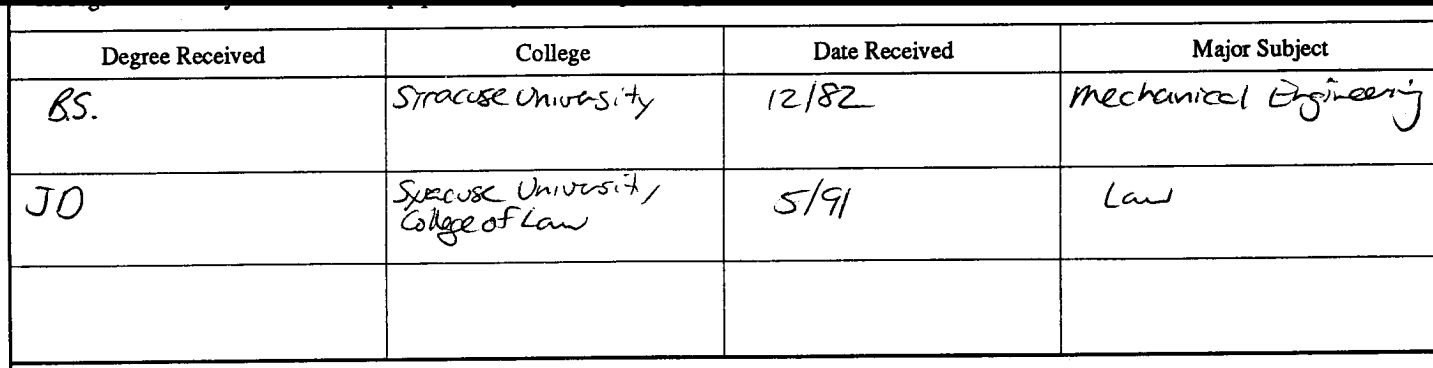 Degree Received College Date Received Major Subject
B.S. Syracuse University 12/82 Mechanical Engineering
JD Syracuse University 5/91 Law
College of Law